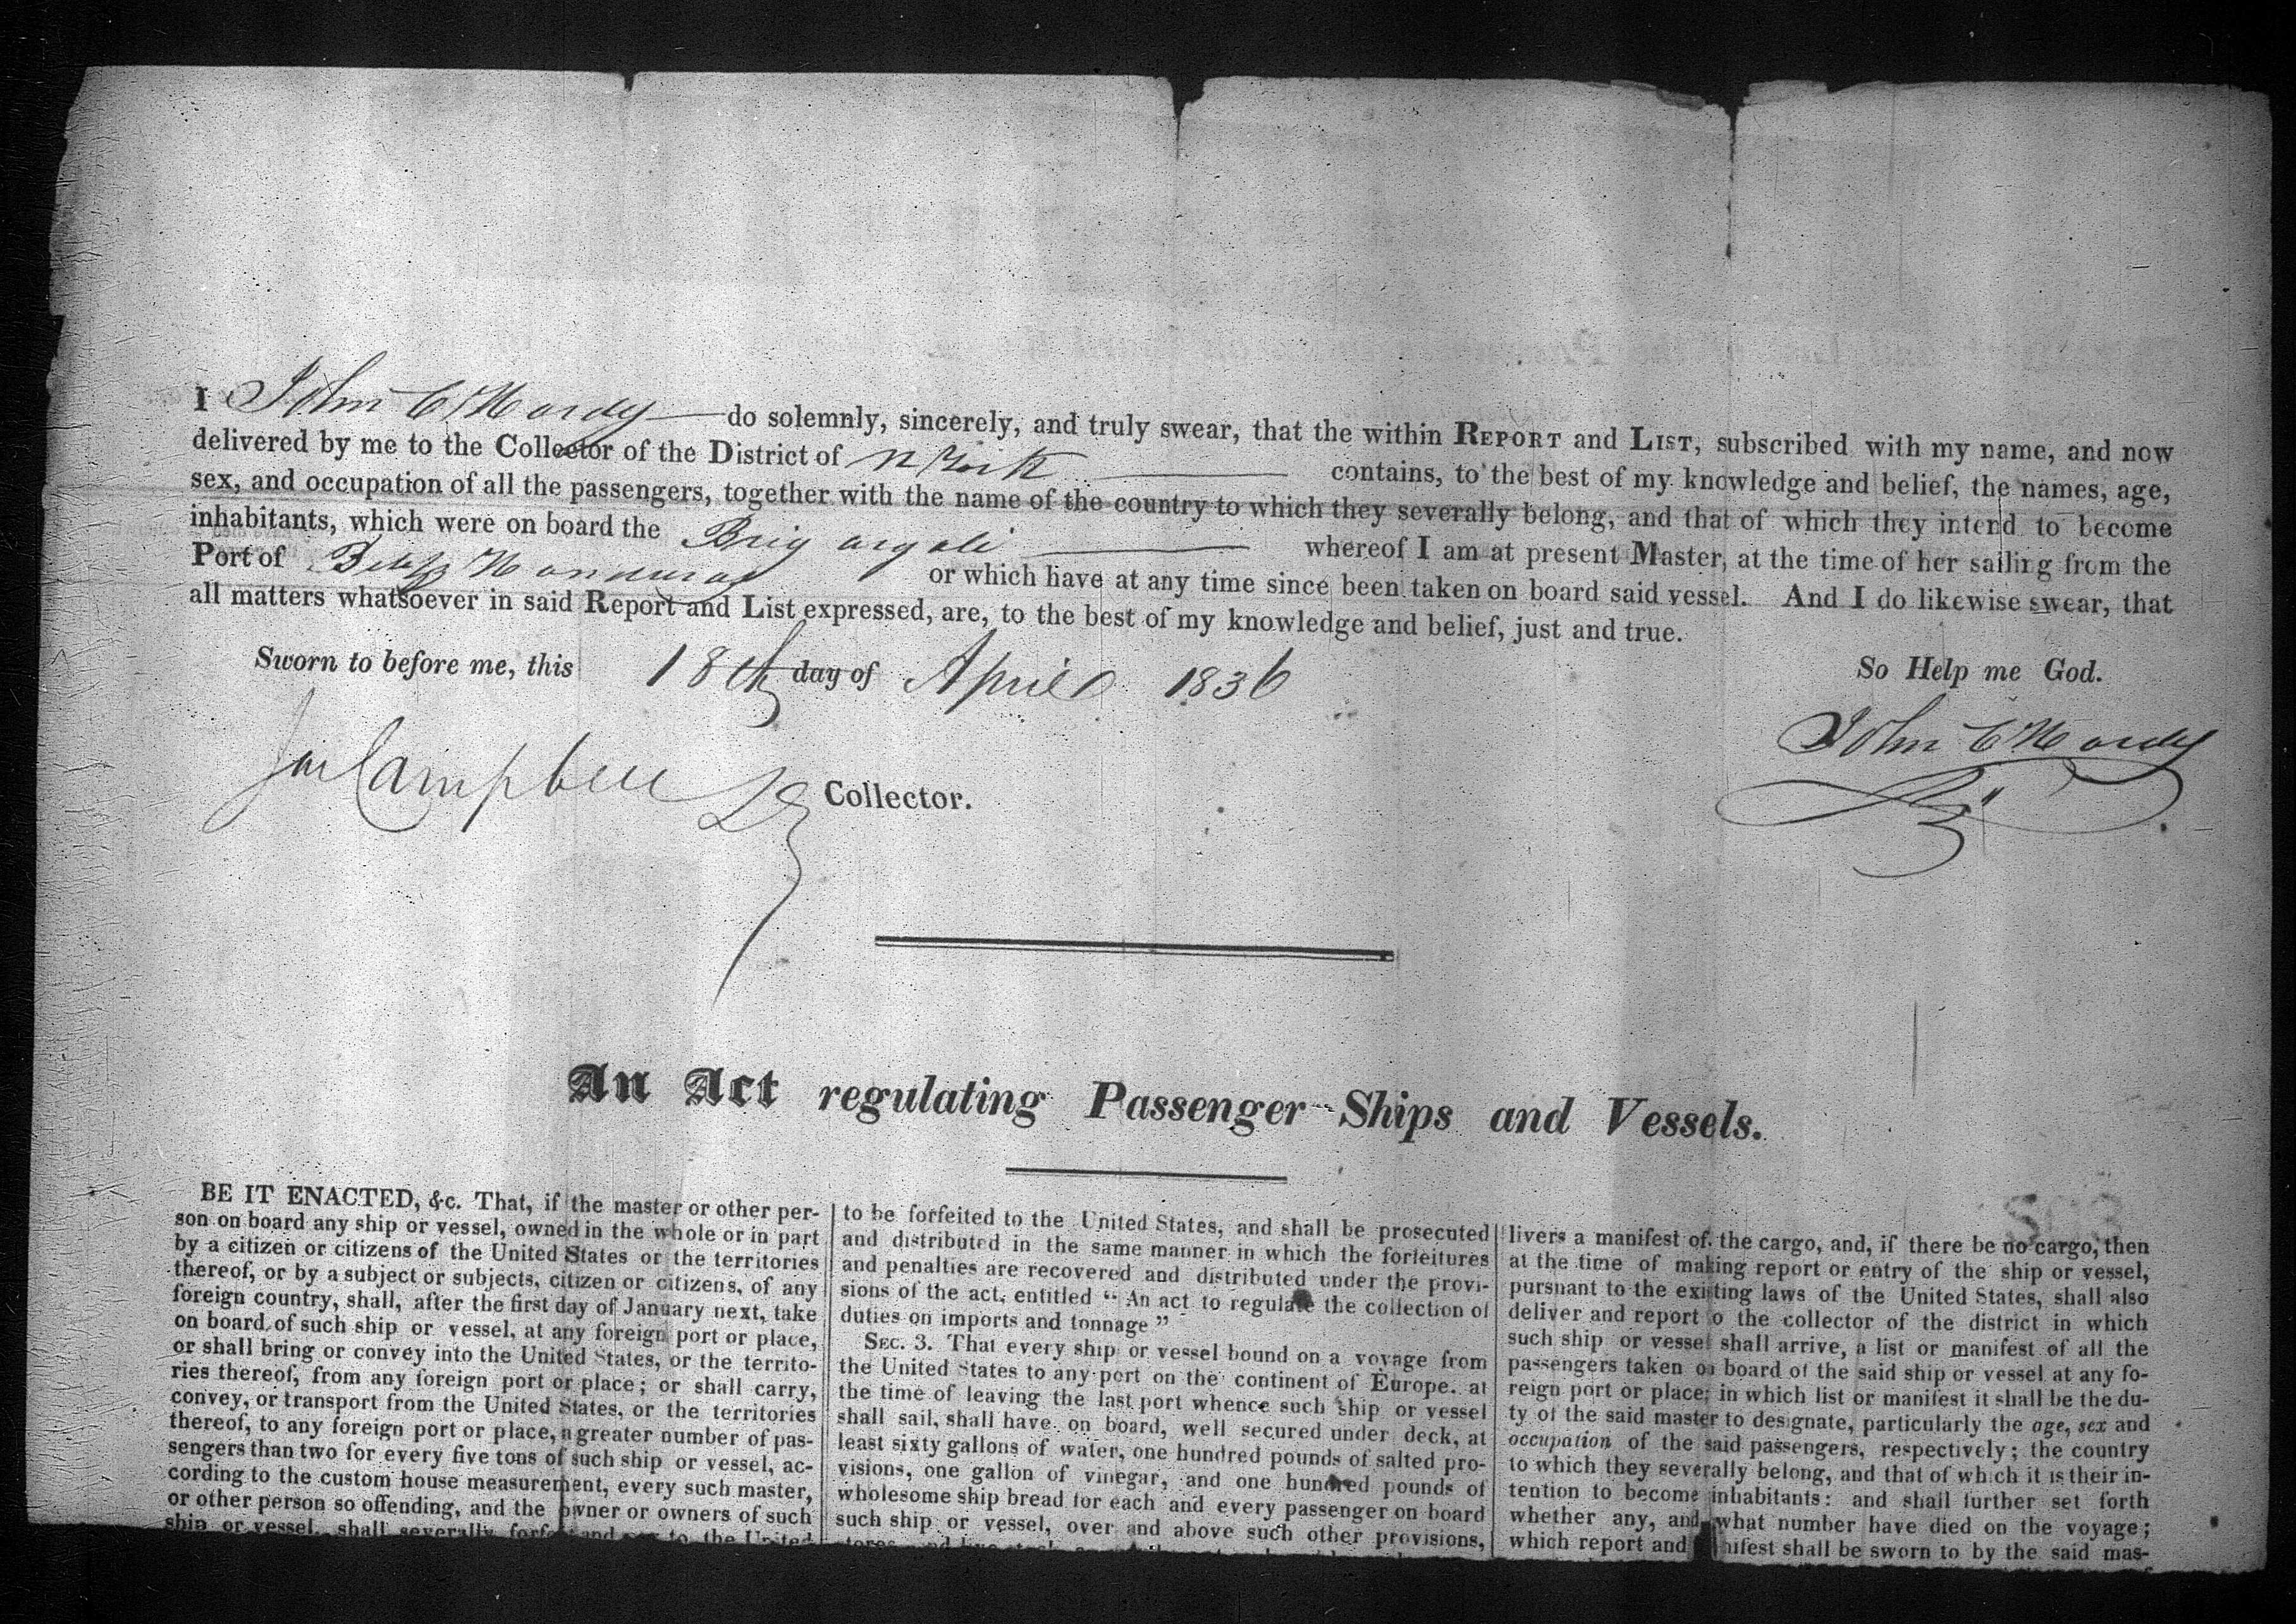 I John C Hardy do solemnly, sincerely, and truly swear, that the within REPORT and LIST, subscribed with my name, and now
delivered by me to the Collector of the District of N York contains, to the best of my knowledge and belief, the names, age,
sex, and occupation of all the passengers, together with the name of the country to which they severally belong, and that of which they intend to become
inhabitants, which were on board the Brig argali whereof I am at present Master, at the time of her sailing from the
Port of Honduras or which have at any time since been taken on board said vessel. And I do likewise swear, that
all matters whatsoever in said Report and List expressed, are, to the best of my knowledge and belief, just and true.
Sworn to before me, this 18th day of April 1836 So Help me God.
John C Hardy
Campbell Collector.
An Act regulating Passenger Ships and Vessels.
BE IT ENACTED, &c. That, if the master or other per-
son on board any ship or vessel, owned in the whole or in part
by a citizen or citizens of the United States or the territories
thereof, or by a subject or subjects, citizen or citizens, of any
foreign country, shall, after the first day of January next, take
on board of such ship or vessel, at any foreign port or place,
or shall bring or convey into the United States, or the territo-
ries thereof, from any foreign port or place; or shall carry,
convey, or transport from the United States, or the territories
thereof, to any foreign port or place, a greater number of pas-
sengers than two for every five tons of such ship or vessel, ac-
cording to the custom house measurement, every such master,
or other person so offending, and the owner or owners of such
ship or vessel, shall severally and to the United
to be forfeited to the United States, and shall be prosecuted
and distributed in the same manner in which the forfeitures
and penalties are recovered and distributed under the provi-
sions of the act, entitled "An act to regulate the collection of
duties on imports and tonnage"
SEC. 3. That every ship or vessel bound on a voyage from
the United States to any port on the continent of Europe. at
the time of leaving the last port whence such ship or vessel
shall sail, shall have on board, well secured under deck, at
least sixty gallons of water, one hundred pounds of salted pro-
visions, one gallon of vinegar, and one hundred pounds of
wholesome ship bread for each and every passenger on board
such ship or vessel, over and above such other provisions,
livers a manifest of the cargo, and, if there be no cargo, then
at the time of making report or entry of the ship or vessel,
pursuant to the existing laws of the United States, shall also
deliver and report to the collector of the district in which
such ship or vessel shall arrive, a list or manifest of all the
passengers taken on board of the said ship or vessel at any fo-
reign port or place; in which list or manifest it shall be the du-
ty of the said master to designate, particularly the age, sex and
occupation of the said passengers, respectively; the country
to which they severally belong, and that of which it is their in-
tention to become inhabitants: and shall further set forth
whether any, and what number have died on the voyage;
which report and manifest shall be sworn to by the said mas-